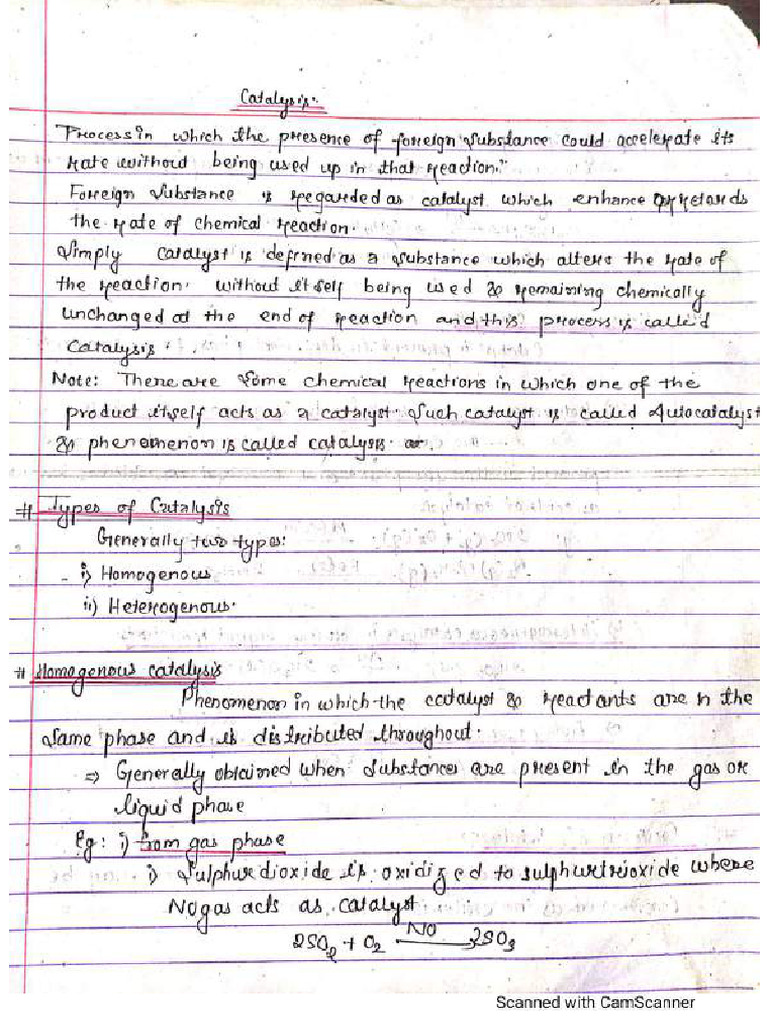 Catalysis:
Process in which the presence of foreign substance could accelerate its
rate without being used up in that reaction."
Foreign substance is regarded as catalyst which enhance or retards
the rate of chemical reaction.
Simply catalyst is defined as a substance which alters the rate of
the reaction. without itself being used & remaining chemically
unchanged at the end of reaction and this process is called
catalysis.
Note: There are some chemical reactions in which one of the
product itself acts as a catalyst. Such catalyst is called Autocatalyst
& phenomenon is called catalysis.
# Types of Catalysis
Generally two types:
i) Homogenous
ii) Heterogenous.
# Homogenous catalysis
Phenomenon in which the catalyst & reactants are n the
same phase and is distributed throughout.
⇒ Generally obtained when substances are present in the gas or
liquid phase
Eg: i) from gas phase
i) Sulphurdioxide is oxidized to sulphurtrioxide where
No gas acts as catalyst
NO
2SO2 + O2 → 2SO3
Scanned with CamScanner